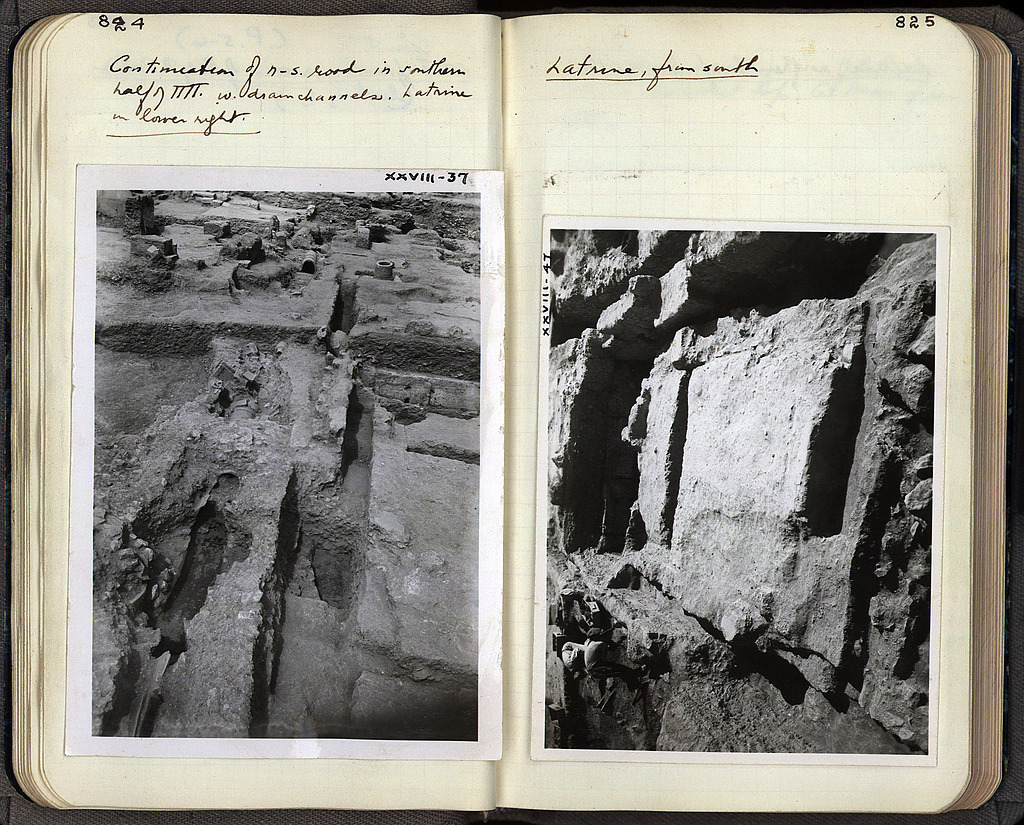 824
Continuation of n-s. road in southern
half of ΠΠ. w. drain channels. Latrine
in lower right.
XXVIII-37
825
Latrine, from south
XXVIII-47